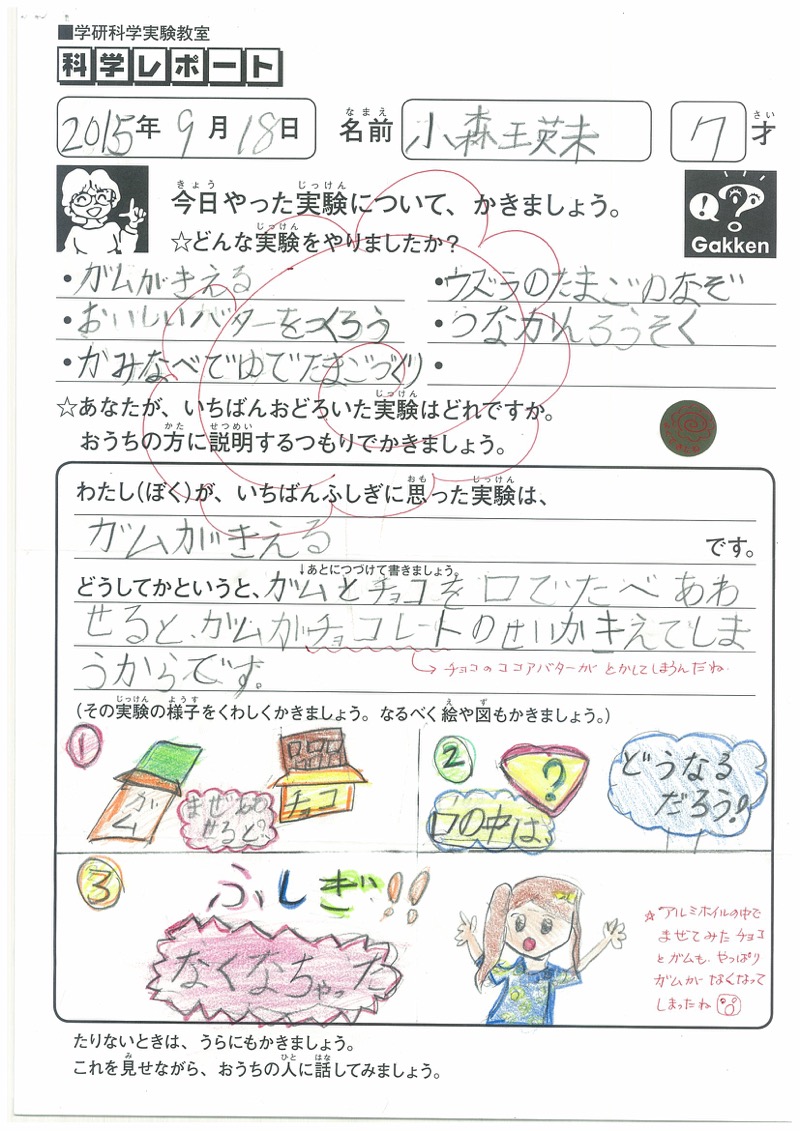 ■学研科学実験教室
科学レポート
2015年 9月 18日 名前 小森王英未 7才
なまえ
さい
きょう じっけん
今日やった実験について、かきましょう。
じっけん
☆どんな実験をやりましたか?
Gakken
・ガムがきえる
・ウズラのたまごのなぞ
・おいしいバターをつくろう
・つながりんろうそく
・かみなべでゆでたまごづくり
・
じっけん
☆あなたが、いちばんおどろいた実験はどれですか。
かた せつめい
おうちの方に説明するつもりでかきましょう。
おも じっけん
わたし(ぼく)が、いちばんふしぎに思った実験は、
ガムがきえる です。
↓あとにつづけて書きましょう。
どうしてかというと、ガムとチョコを口でたべあわ
せると、ガムがチョコレートのせいかきえてしま
うからです。
→チョコのココアバターがとかしてしまうんだね
じっけん ようす え ず
(その実験の様子をくわしくかきましょう。なるべく絵や図もかきましょう。)
1
ガム
まぜあわせると?
チョコ
2
?
口の中は、
どうなる
だろう!
3
ふしぎ!!
なくなちゃった
☆アルミホイルの中で
まぜてみたチョコ
とガムも、やっぱり
ガムがなくなって
しまったね
たりないときは、うらにもかきましょう。
み ひと はな
これを見せながら、おうちの人に話してみましょう。